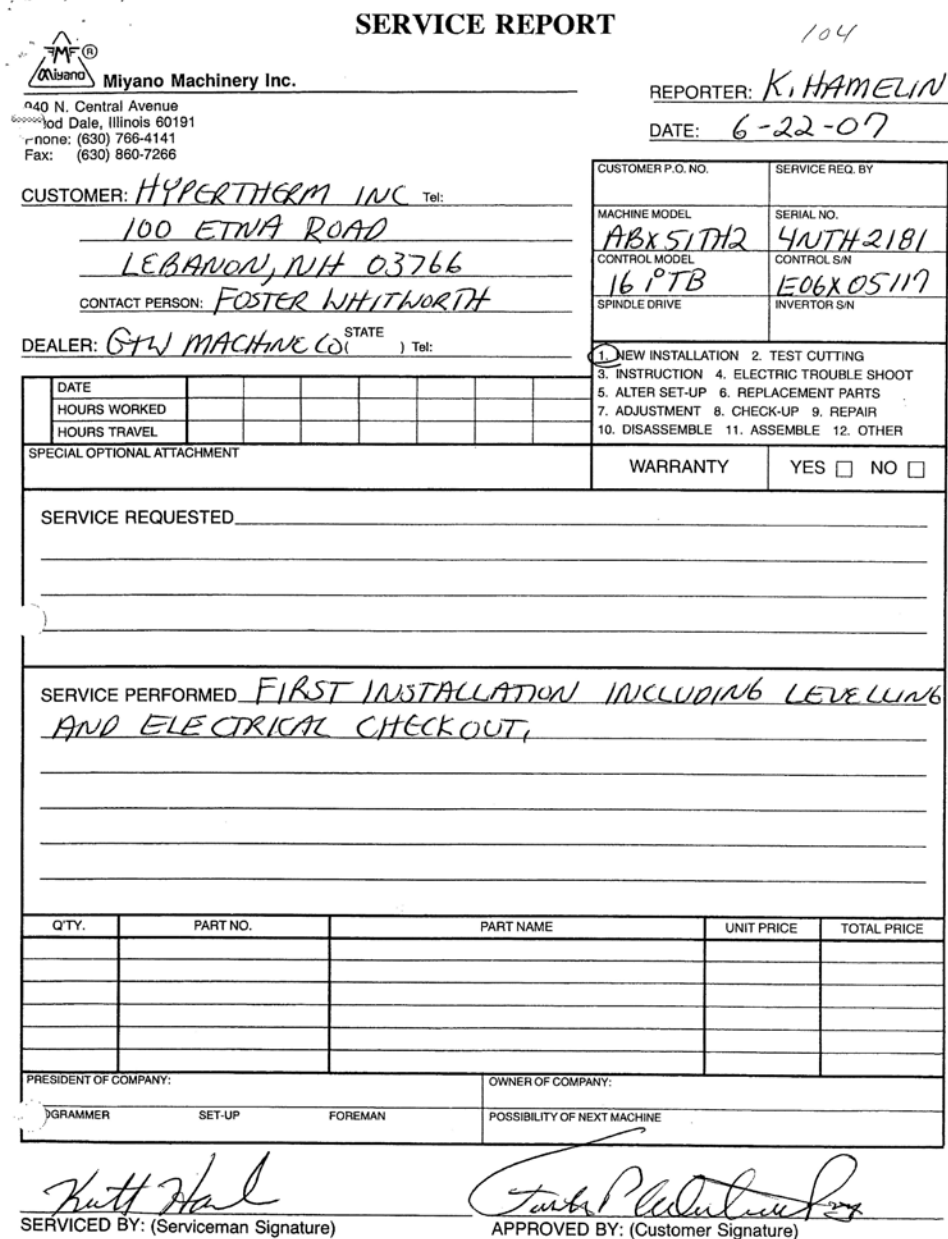 SERVICE REPORT
104
MF ®
Miyano
Miyano Machinery Inc.
940 N. Central Avenue
ood Dale, Illinois 60191
Phone: (630) 766-4141
Fax: (630) 860-7266
REPORTER: K. HAMELIN
DATE: 6-22-07
CUSTOMER: HYPERTHERM INC Tel:
100 ETNA ROAD
LEBANON, NH 03766
CONTACT PERSON: FOSTER WHITWORTH
DEALER: GTW MACHINE CO (STATE ) Tel:
CUSTOMER P.O. NO. SERVICE REQ. BY
MACHINE MODEL SERIAL NO.
ABX51TH2 4NTH2181
CONTROL MODEL CONTROL S/N
16iTB E06X05117
SPINDLE DRIVE INVERTOR S/N
1. NEW INSTALLATION 2. TEST CUTTING
3. INSTRUCTION 4. ELECTRIC TROUBLE SHOOT
5. ALTER SET-UP 6. REPLACEMENT PARTS
7. ADJUSTMENT 8. CHECK-UP 9. REPAIR
10. DISASSEMBLE 11. ASSEMBLE 12. OTHER
DATE
HOURS WORKED
HOURS TRAVEL
SPECIAL OPTIONAL ATTACHMENT
WARRANTY YES □ NO □
SERVICE REQUESTED
SERVICE PERFORMED FIRST INSTALLATION INCLUDING LEVELLING
AND ELECTRICAL CHECKOUT,
Q'TY. PART NO. PART NAME UNIT PRICE TOTAL PRICE
PRESIDENT OF COMPANY: OWNER OF COMPANY:
OGRAMMER SET-UP FOREMAN POSSIBILITY OF NEXT MACHINE
SERVICED BY: (Serviceman Signature) APPROVED BY: (Customer Signature)